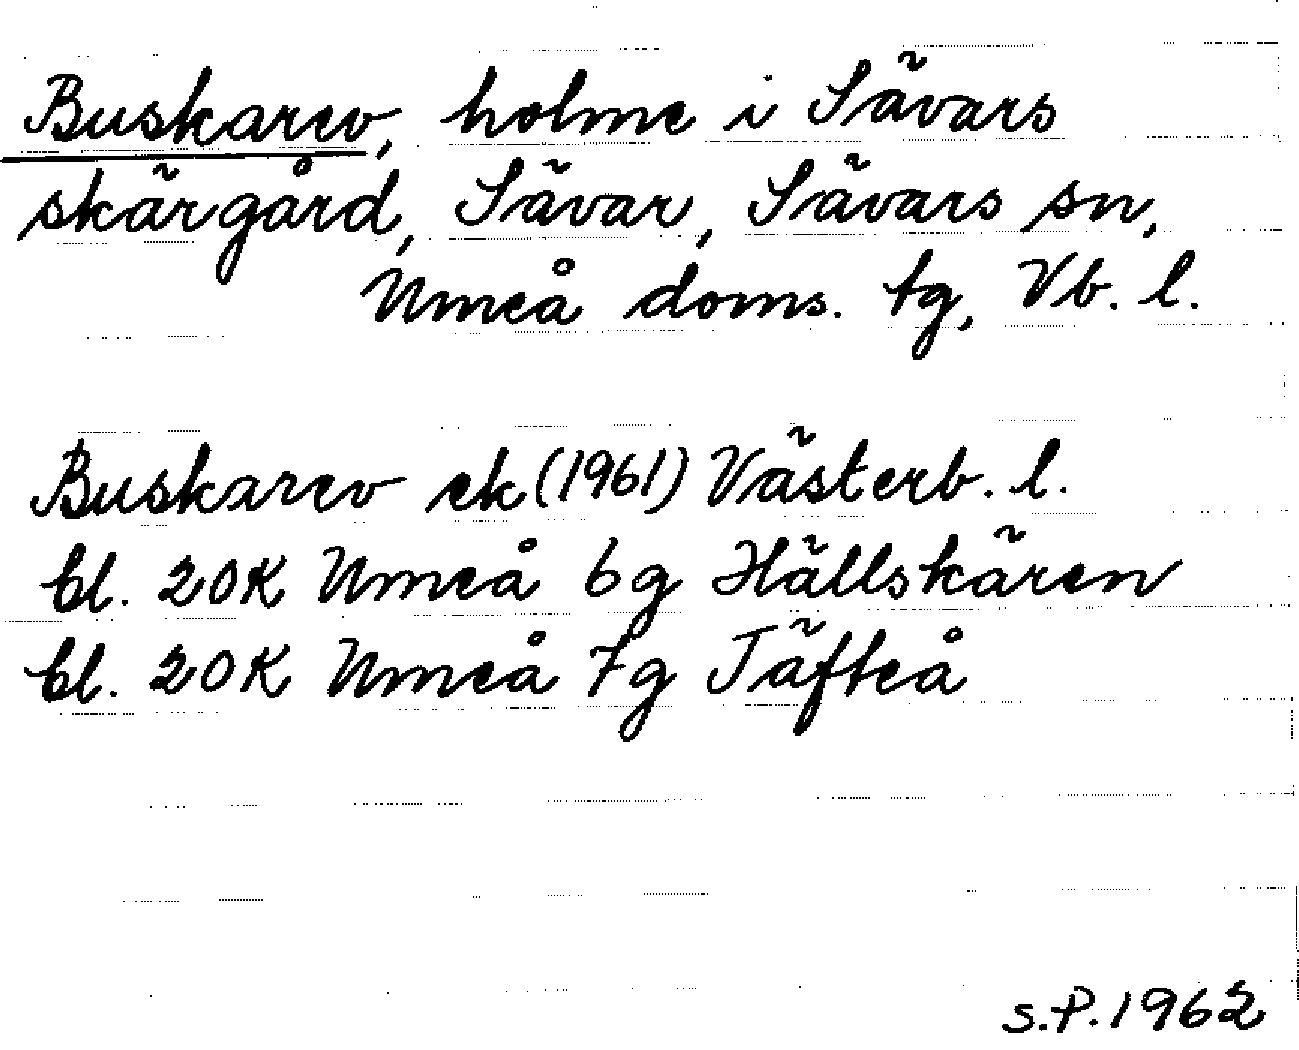 Buskarev, holme i Sävars
skärgård, Sävar, Sävars sn,
Umeå doms. tg, Vb. l.
Buskarev ek (1961) Västerb. l.
bl. 20K Umeå 6g Hällskären
bl. 20K Umeå 7g Täfteå
S.P. 1962